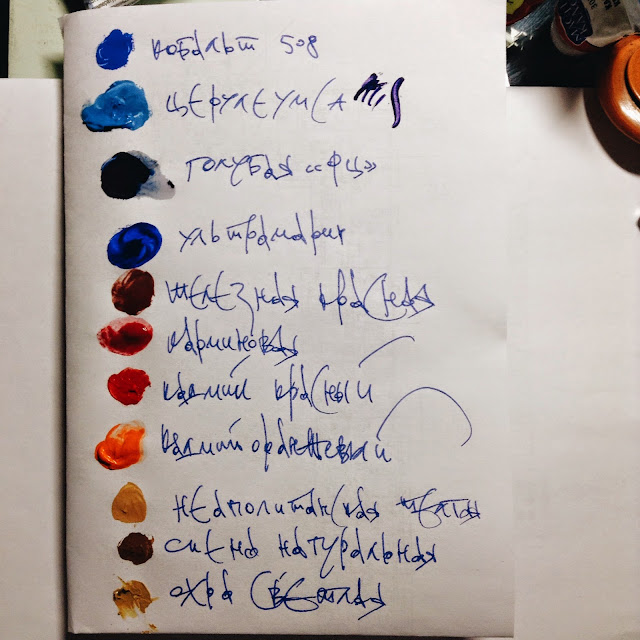 кобальт 508
церулеум (А
голубая «ФЦ»
ультрамарин
железная красная
карминовая
кадмий красный
кадмий оранжевый
неаполитанская желтая
сиена натуральная
охра светлая